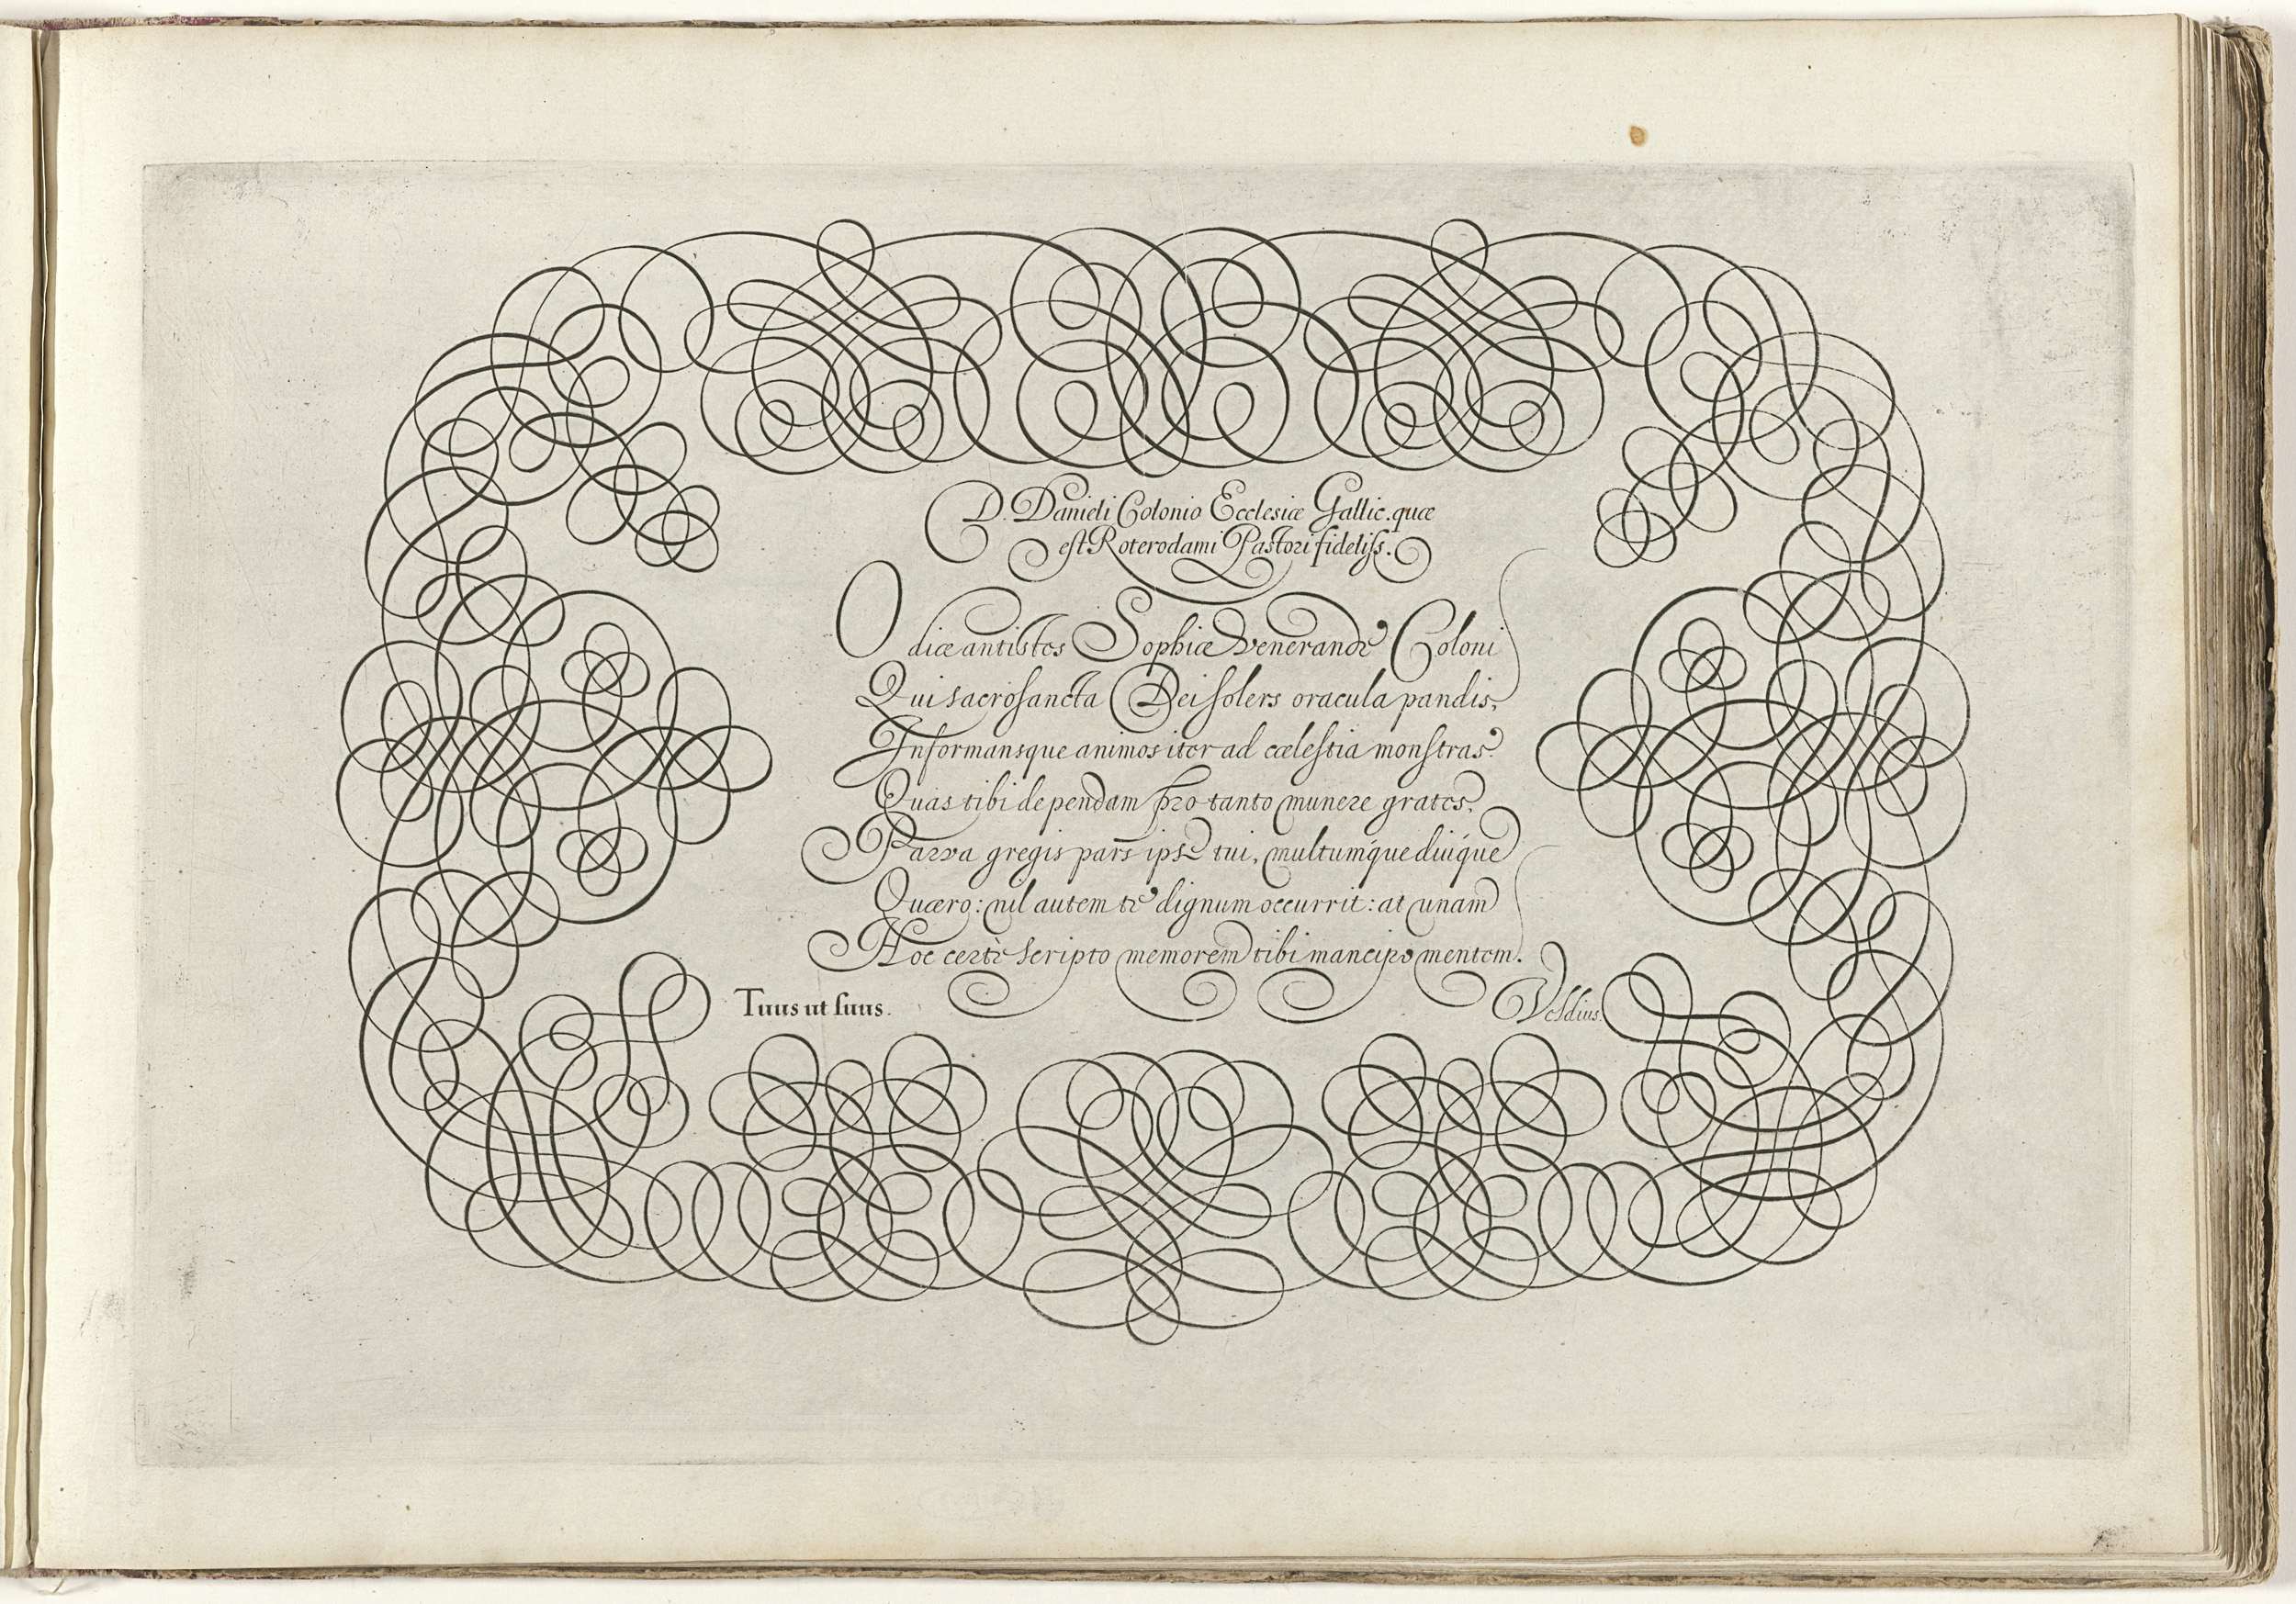 D. Danieli Colonio Ecclesiæ Gallic. quæ
est Roterodami Pastori fideliss.
O diæ antistes Sophiæ venerande Coloni
Qui sacrosancta Dei solers oracula pandis,
Informansque animos iter ad cælestia monstras.
Quas tibi dependam pro tanto munere grates,
Parva gregis pars ipse tui, multumque diuque
Quæro: nil autem te dignum occurrit: at unam
Hoc certè scripto memorem tibi mancipo mentem.
Tuus ut suus.
Veldius.